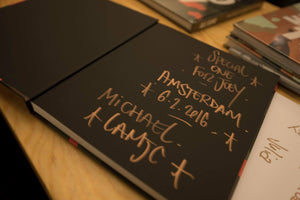 SPECIAL
ONE
FOR JOEY.
AMSTERDAM.
6·2·2016
MICHAEL.
LAMJC
Julia